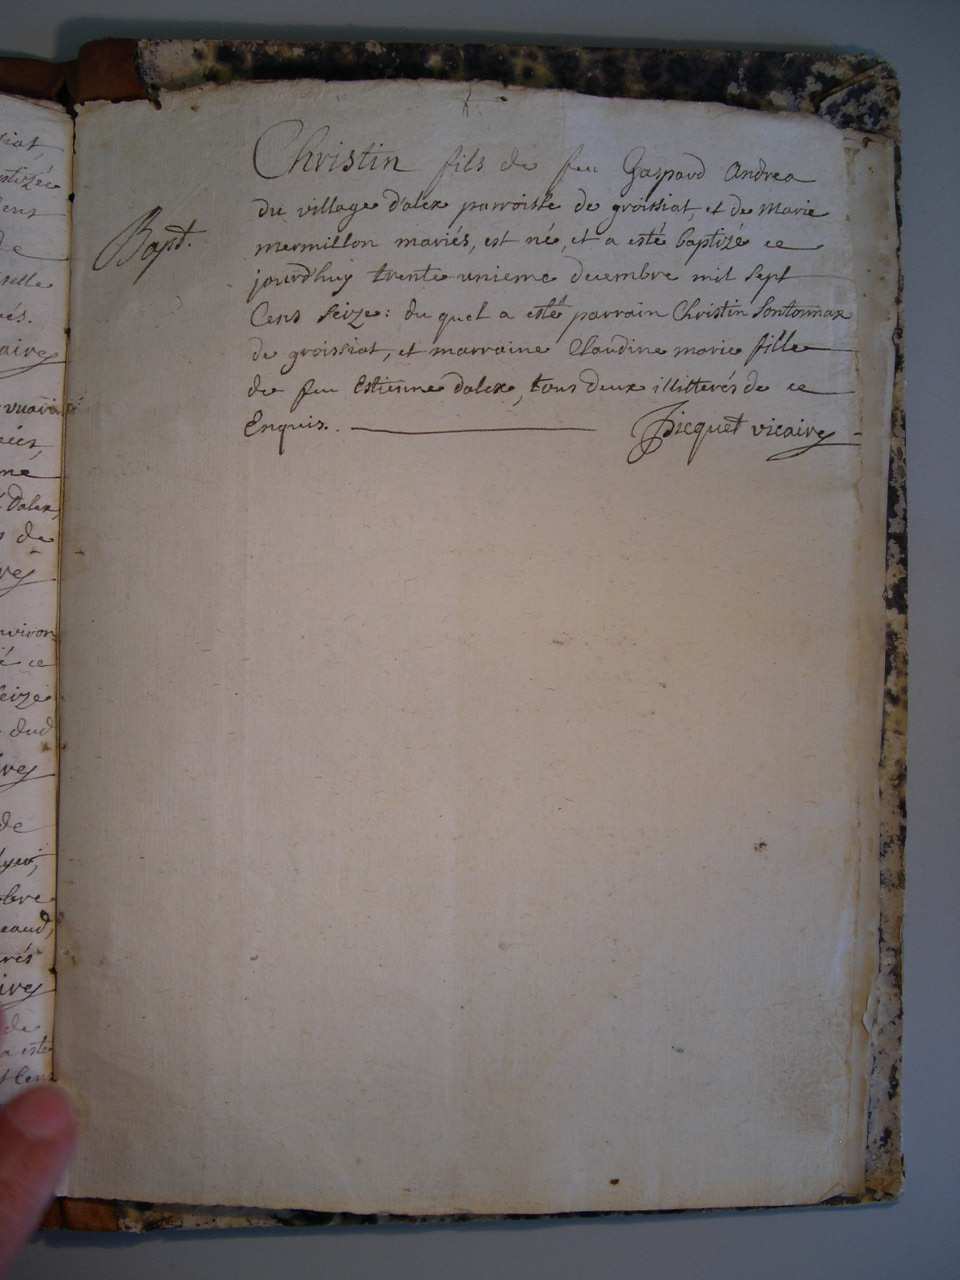 Christin fils de feu Gaspard Andrea
du village d'alex parroisse de groissiat, et de Marie
Bapt.
mermillon mariés, est né, et a esté baptizé ce
jourd'huy trente unieme decembre mil sept
Cens seize: du quel a esté parrain Christin Sontonnax
de groissiat, et marraine Claudine marie fille
de feu Estienne dalex, tous deux illitterés de ce
Enquis.
Jicquet vicaire
de
d'alex,
de
ce
de
de
a esté